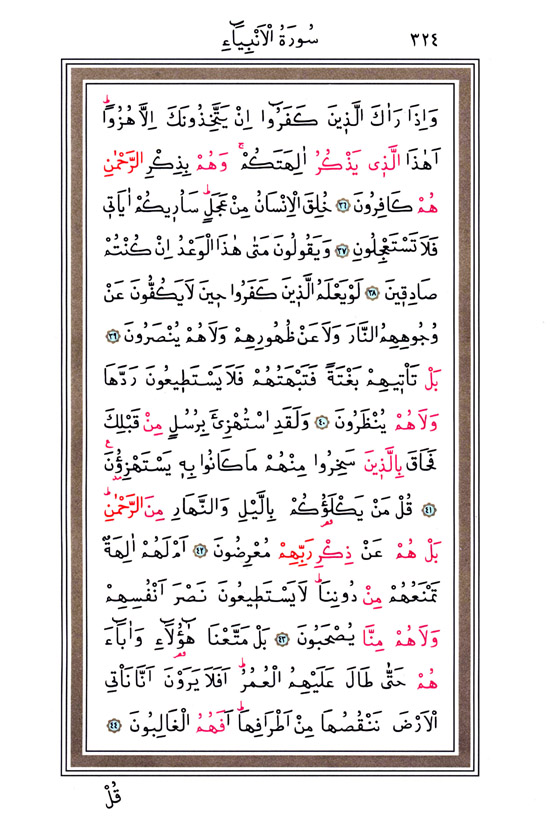 ٣٢٤ سُورَةُ الْاَنْبِيَٓاءِ
وَاِذَا رَاٰكَ الَّذ۪ينَ كَفَرُٓوا اِنْ يَتَّخِذُونَكَ اِلَّا هُزُوًاۜ
اَهٰذَا الَّذ۪ي يَذْكُرُ اٰلِهَتَكُمْۚ وَهُمْ بِذِكْرِ الرَّحْمٰنِ
هُمْ كَافِرُونَ ﴿٣٦﴾ خُلِقَ الْاِنْسَانُ مِنْ عَجَلٍۜ سَاُر۪يكُمْ اٰيَات۪ي
فَلَا تَسْتَعْجِلُونِ ﴿٣٧﴾ وَيَقُولُونَ مَتٰى هٰذَا الْوَعْدُ اِنْ كُنْتُمْ
صَادِق۪ينَ ﴿٣٨﴾ لَوْ يَعْلَمُ الَّذ۪ينَ كَفَرُوا ح۪ينَ لَا يَكُفُّونَ عَنْ
وُجُوهِهِمُ النَّارَ وَلَا عَنْ ظُهُورِهِمْ وَلَا هُمْ يُنْصَرُونَ ﴿٣٩﴾
بَلْ تَأْت۪يهِمْ بَغْتَةً فَتَبْهَتُهُمْ فَلَا يَسْتَط۪يعُونَ رَدَّهَا
وَلَا هُمْ يُنْظَرُونَ ﴿٤٠﴾ وَلَقَدِ اسْتُهْزِئَ بِرُسُلٍ مِنْ قَبْلِكَ
فَحَاقَ بِالَّذ۪ينَ سَخِرُوا مِنْهُمْ مَا كَانُوا بِه۪ يَسْتَهْزِؤُ۫نَ۟
﴿٤١﴾ قُلْ مَنْ يَكْلَؤُ۬كُمْ بِالَّيْلِ وَالنَّهَارِ مِنَ الرَّحْمٰنِۜ
بَلْ هُمْ عَنْ ذِكْرِ رَبِّهِمْ مُعْرِضُونَ ﴿٤٢﴾ اَمْ لَهُمْ اٰلِهَةٌ
تَمْنَعُهُمْ مِنْ دُونِنَاۜ لَا يَسْتَط۪يعُونَ نَصْرَ اَنْفُسِهِمْ
وَلَا هُمْ مِنَّا يُصْحَبُونَ ﴿٤٣﴾ بَلْ مَتَّعْنَا هٰٓؤُ۬لَٓاءِ وَاٰبَٓاءَ
هُمْ حَتّٰى طَالَ عَلَيْهِمُ الْعُمُرُۜ اَفَلَا يَرَوْنَ اَنَّا نَأْتِي
الْاَرْضَ نَنْقُصُهَا مِنْ اَطْرَافِهَاۜ اَفَهُمُ الْغَالِبُونَ ﴿٤٤﴾
قُلْ